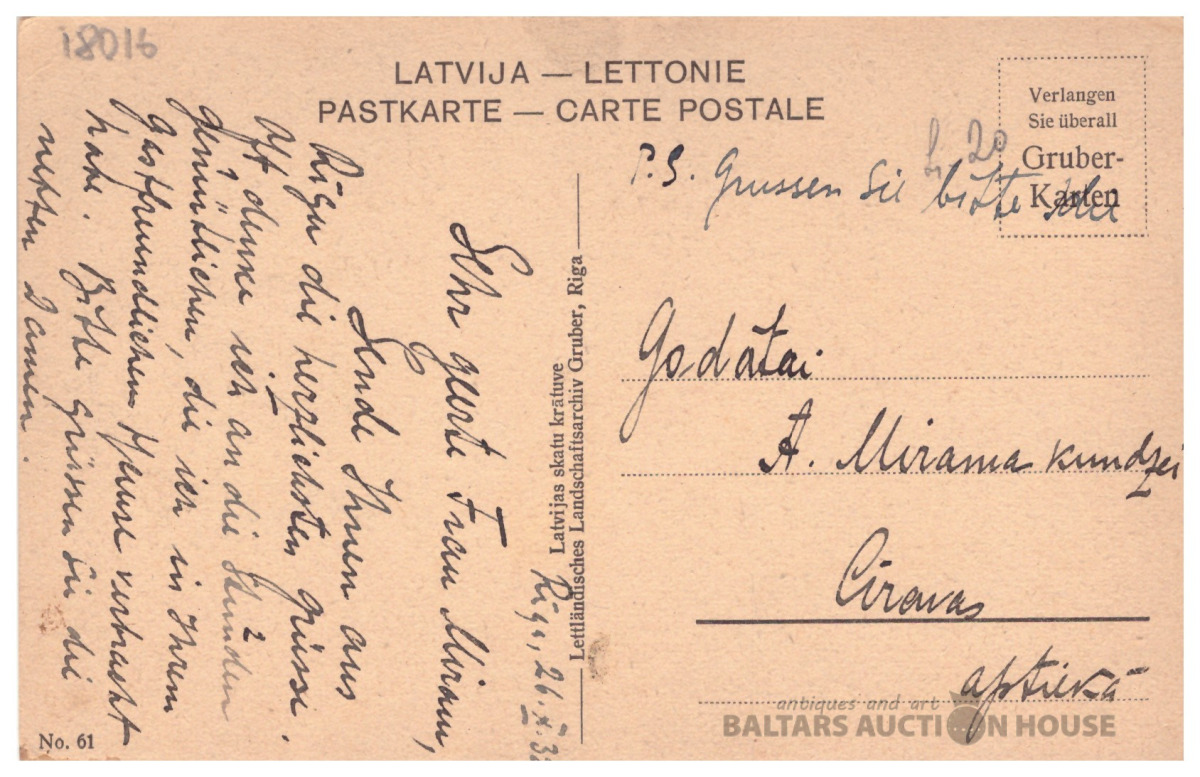 18016
LATVIJA — LETTONIE
PASTKARTE — CARTE POSTALE
Verlangen
Sie überall
Gruber-
Karten
20
P.S. Grussen Sie bitte
Riga, 26.
Sehr geerte Frau Miram,
Sende Ihnen aus
Riga die herzlichsten Grüsse.
Oft denke ich an die Stunden
gemütlichen, die ich in Ihrem
gastfreundlichem Hause verbracht
habe. Bitte grüssen Sie die
netten Damen.
Latvijas skatu krātuve
Lettländisches Landschaftsarchiv Gruber, Riga
Godātai
A. Mirama kundzei
Cīravas
aptiekā
No. 61
antiques and art
BALTARS AUCTION HOUSE